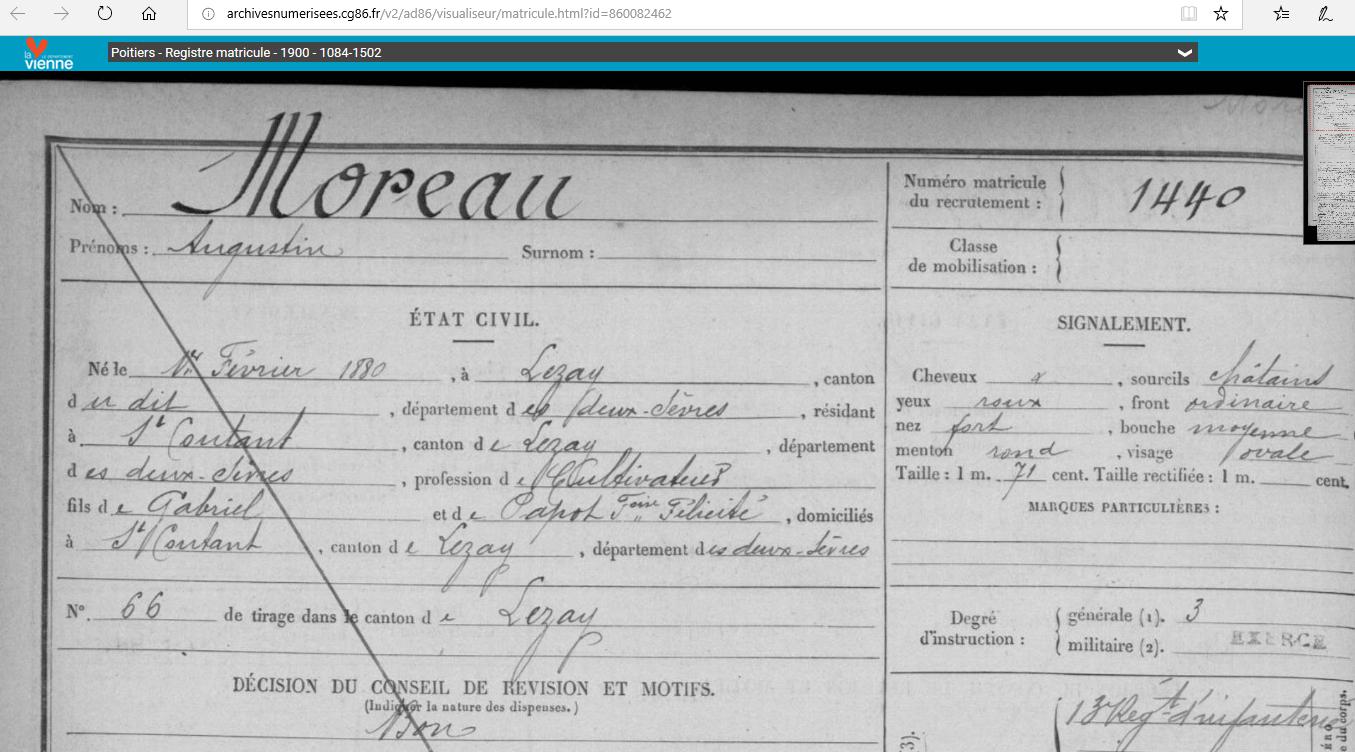 archivesnumerisees.cg86.fr/v2/ad86/visualiseur/matricule.html?id=860082462
la vienne
Poitiers - Registre matricule - 1900 - 1084-1502
Nom : Moreau
Prénoms : Augustin Surnom :
Numéro matricule du recrutement : 1440
Classe de mobilisation :
ÉTAT CIVIL.
Né le 1er Février 1880, à Lezay, canton
du dit, département des deux-Sèvres, résidant
à St Coutant, canton de Lezay, département
des deux-Sèvres, profession de Cultivateur
fils de Gabriel et de Papot Félicité, domiciliés
à St Coutant, canton de Lezay, département des deux-Sèvres
N° 66 de tirage dans le canton de Lezay
DÉCISION DU CONSEIL DE REVISION ET MOTIFS.
(Indiquer la nature des dispenses.)
Bon
SIGNALEMENT.
Cheveux, sourcils châtains
yeux roux, front ordinaire
nez fort, bouche moyenne
menton rond, visage ovale
Taille : 1 m. 71 cent. Taille rectifiée : 1 m. cent.
MARQUES PARTICULIÈRES :
Degré d'instruction : générale (1). 3
militaire (2). EXERCÉ
Regt d'infanterie
du corps.